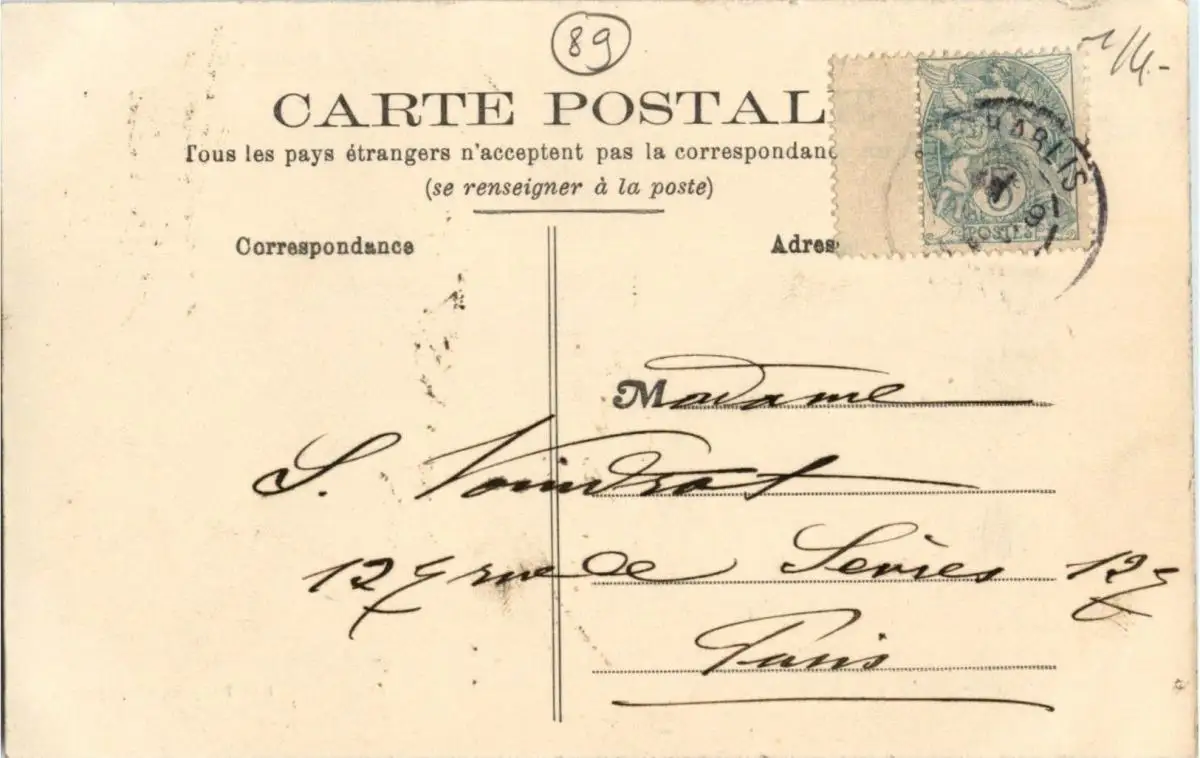 89
CARTE POSTAL
Tous les pays étrangers n'acceptent pas la correspondanc
(se renseigner à la poste)
Correspondance
Adres
HABLIS
5
POSTES
Madame
S. Voindrot
127 rue de Sèvres 127
Paris